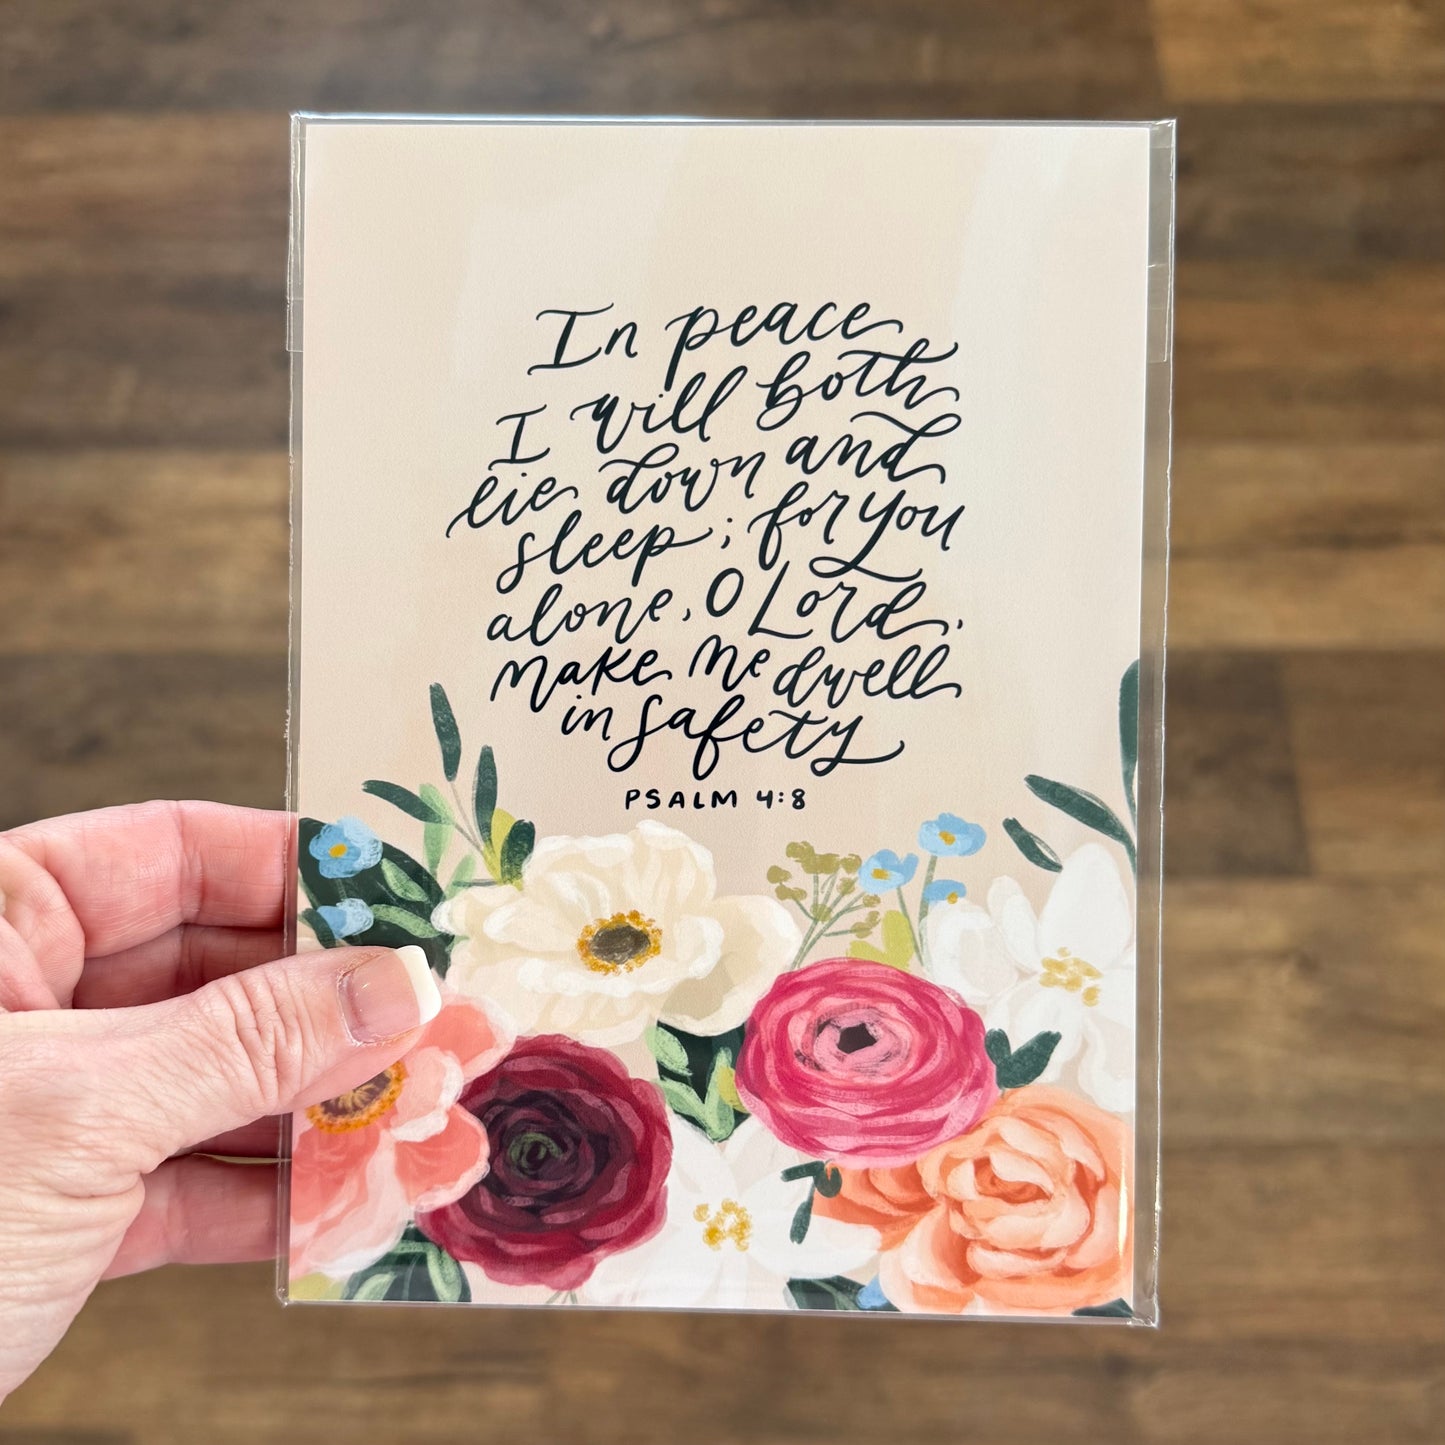 In peace
I will both
lie down and
sleep; for you
alone, O Lord,
make me dwell
in safety
PSALM 4:8